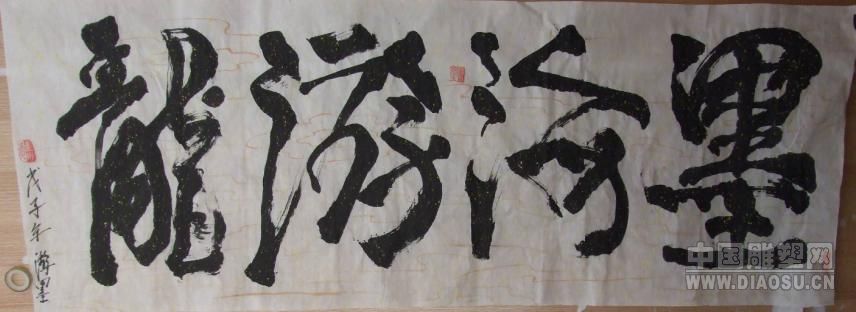 墨海游龍
戊子年 海墨
中国雕塑网
WWW.DIAOSU.CN